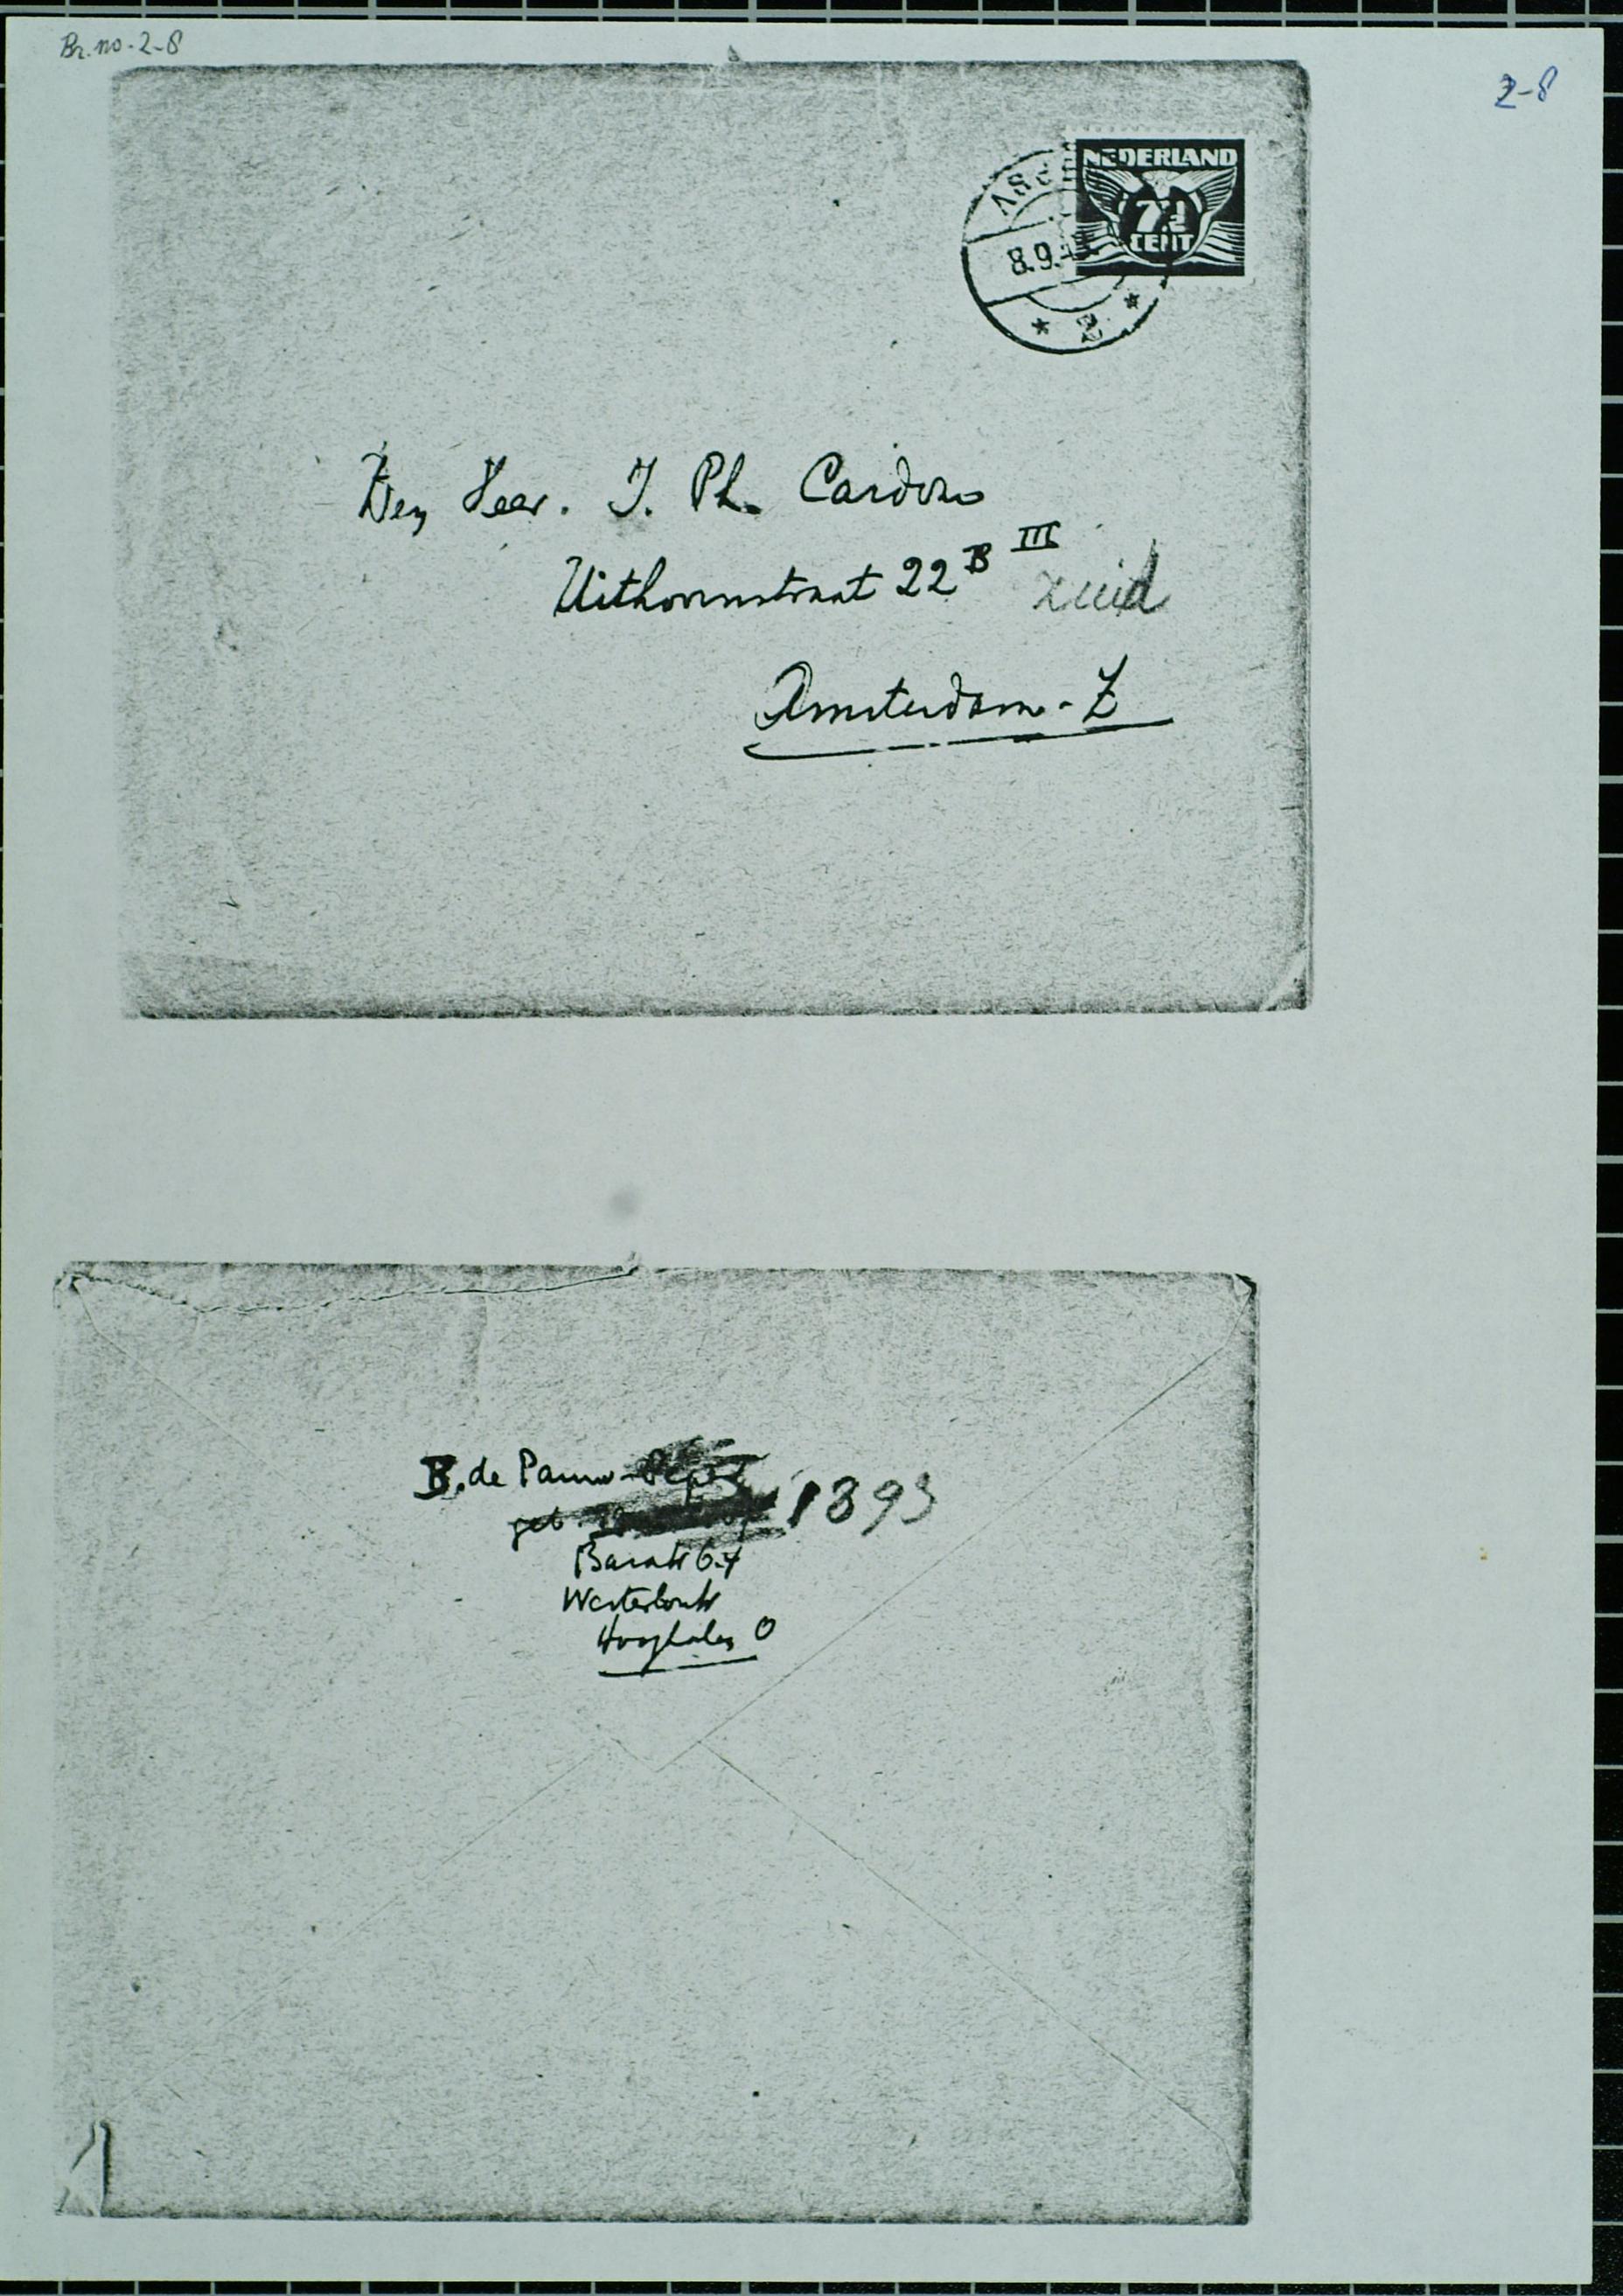 Br. no. 2-8
2-8
NEDERLAND
7½
CENT
8.9.
* 2 *
Den Heer. J. Ph. Cardozo
Uithoornstraat 22 B III zuid
Amsterdam-Z
B. de Pauw-
geb. 1893
Barak 64
Westerbork
Hooghalen O